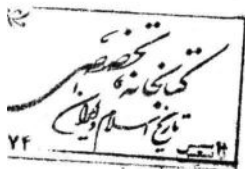 کتابخانه تخصصی
تاریخ اسلام و ایران
۷۴